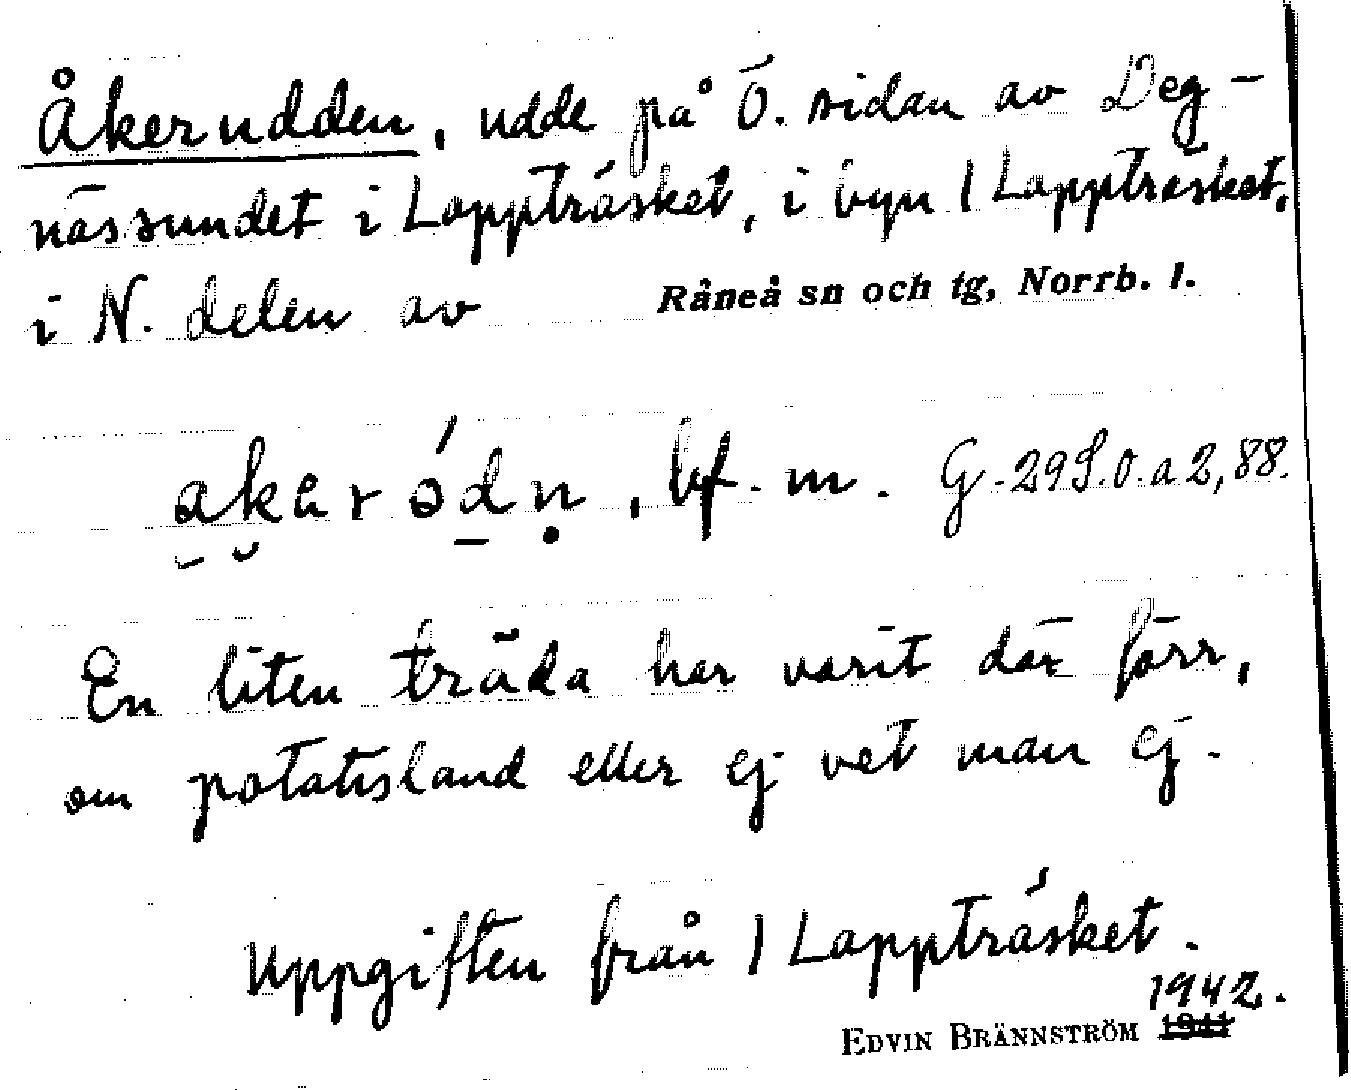 Åkerudden, udde på Ö. sidan av Deg-
nässundet i Lappträsket, i byn 1 Lappträsket,
i N. delen av Råneå sn och tg, Norrb. l.
bf. m. G.29S.O.a2,88.
En liten träda har varit där förr,
om potatisland eller ej vet man ej.
Uppgiften från 1 Lappträsket.
1942.
EDVIN BRÄNNSTRÖM 1941